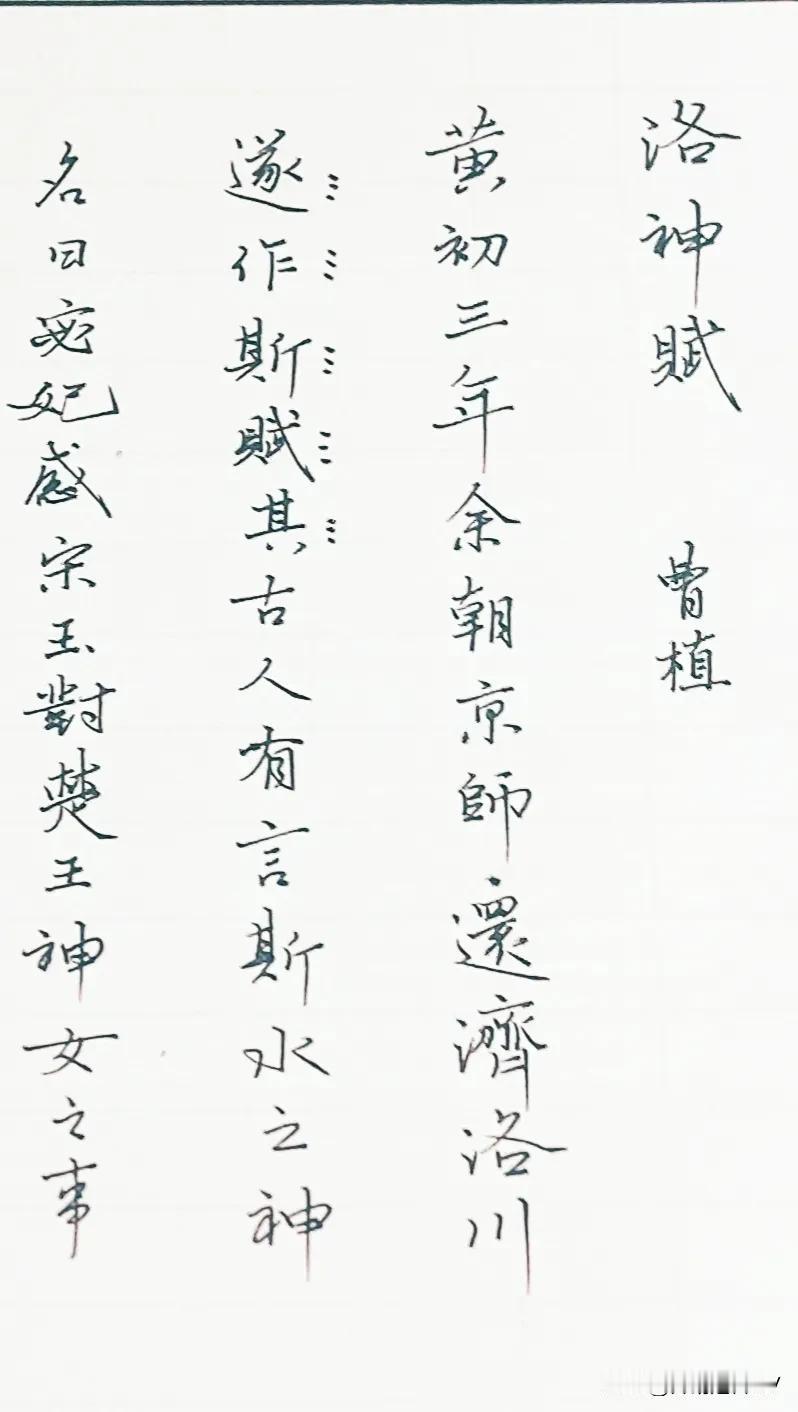 洛神賦 曹植
黄初三年余朝京師還濟洛川
遂作斯賦其古人有言斯水之神
名曰宓妃感宋玉對楚王神女之事